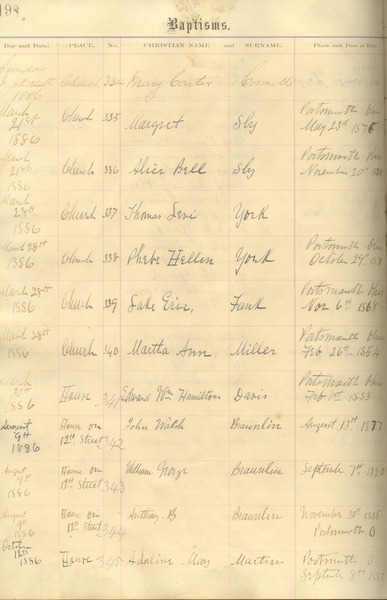 198
Baptisms.
Day and Date. PLACE. No. CHRISTIAN NAME and SURNAME. Place and Date of Birth.
Sunday
1886 Church 334 Mary
March 21st 1886 Church 335 Margret Sly Portsmouth Ohio May 23rd 1876
March 21st 1886 Church 336 Alice Bell Sly Portsmouth Ohio November 20th
March 28th 1886 Church 337 Thomas Levi York
March 28th 1886 Church 338 Phebe Hellen York Portsmouth Ohio October 29th
March 28th 1886 Church 339 Funk Portsmouth Ohio Nov 6th 1868
March 28th 1886 Church 340 Martha Ann Miller Portsmouth Ohio Feb 26th 1864
1886 House 341 Edward Wm Hamilton Davis Portsmouth Ohio Feb 1st 1853
August 9th 1886 House on 12th Street 342 John Walch Braunlin August 13th 1877
August 9th 1886 House on 12th Street 343 William George Braunlin Septbr 7th 1880
August 9th 1886 House on 12th Street 344 Anthony B Braunlin November 30th Portsmouth O
October 12th 1886 House 345 Adaline May Martin Portsmouth O Septbr 8th